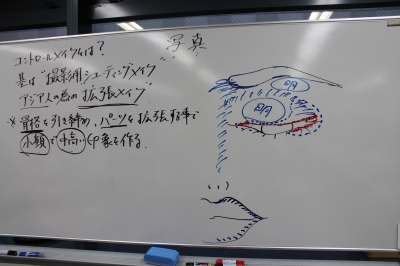 コントロールメイクとは?
写真
基は"撮影用シューティングメイク"
アジア人の為の"拡張メイク"
※骨格を引き締め、パーツを拡張する事で
小顔で中高い印象を作る。
明
明